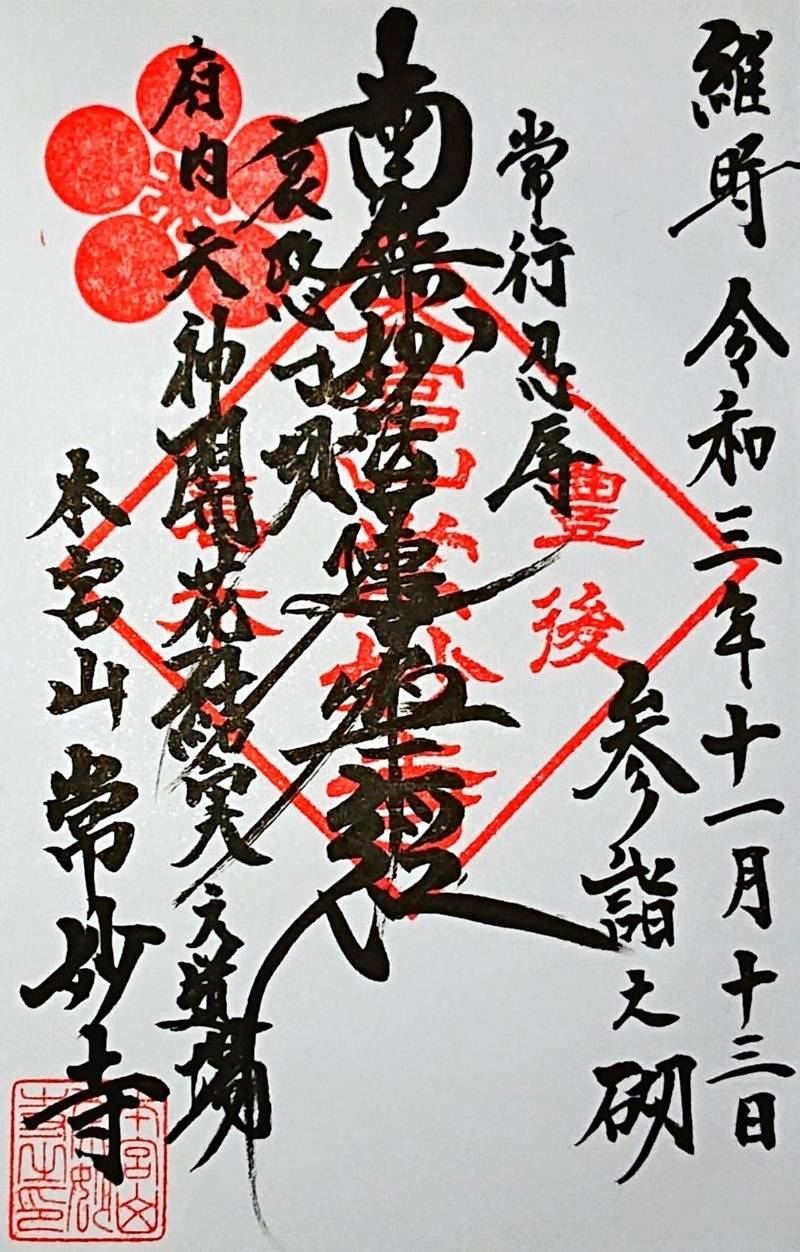 維時 令和三年十一月十三日
参詣之砌
常行忍辱
南無妙法蓮華経
哀愍一切
府内天神開花結実之道場
本宮山 常妙寺
豊後
本宮山常妙寺